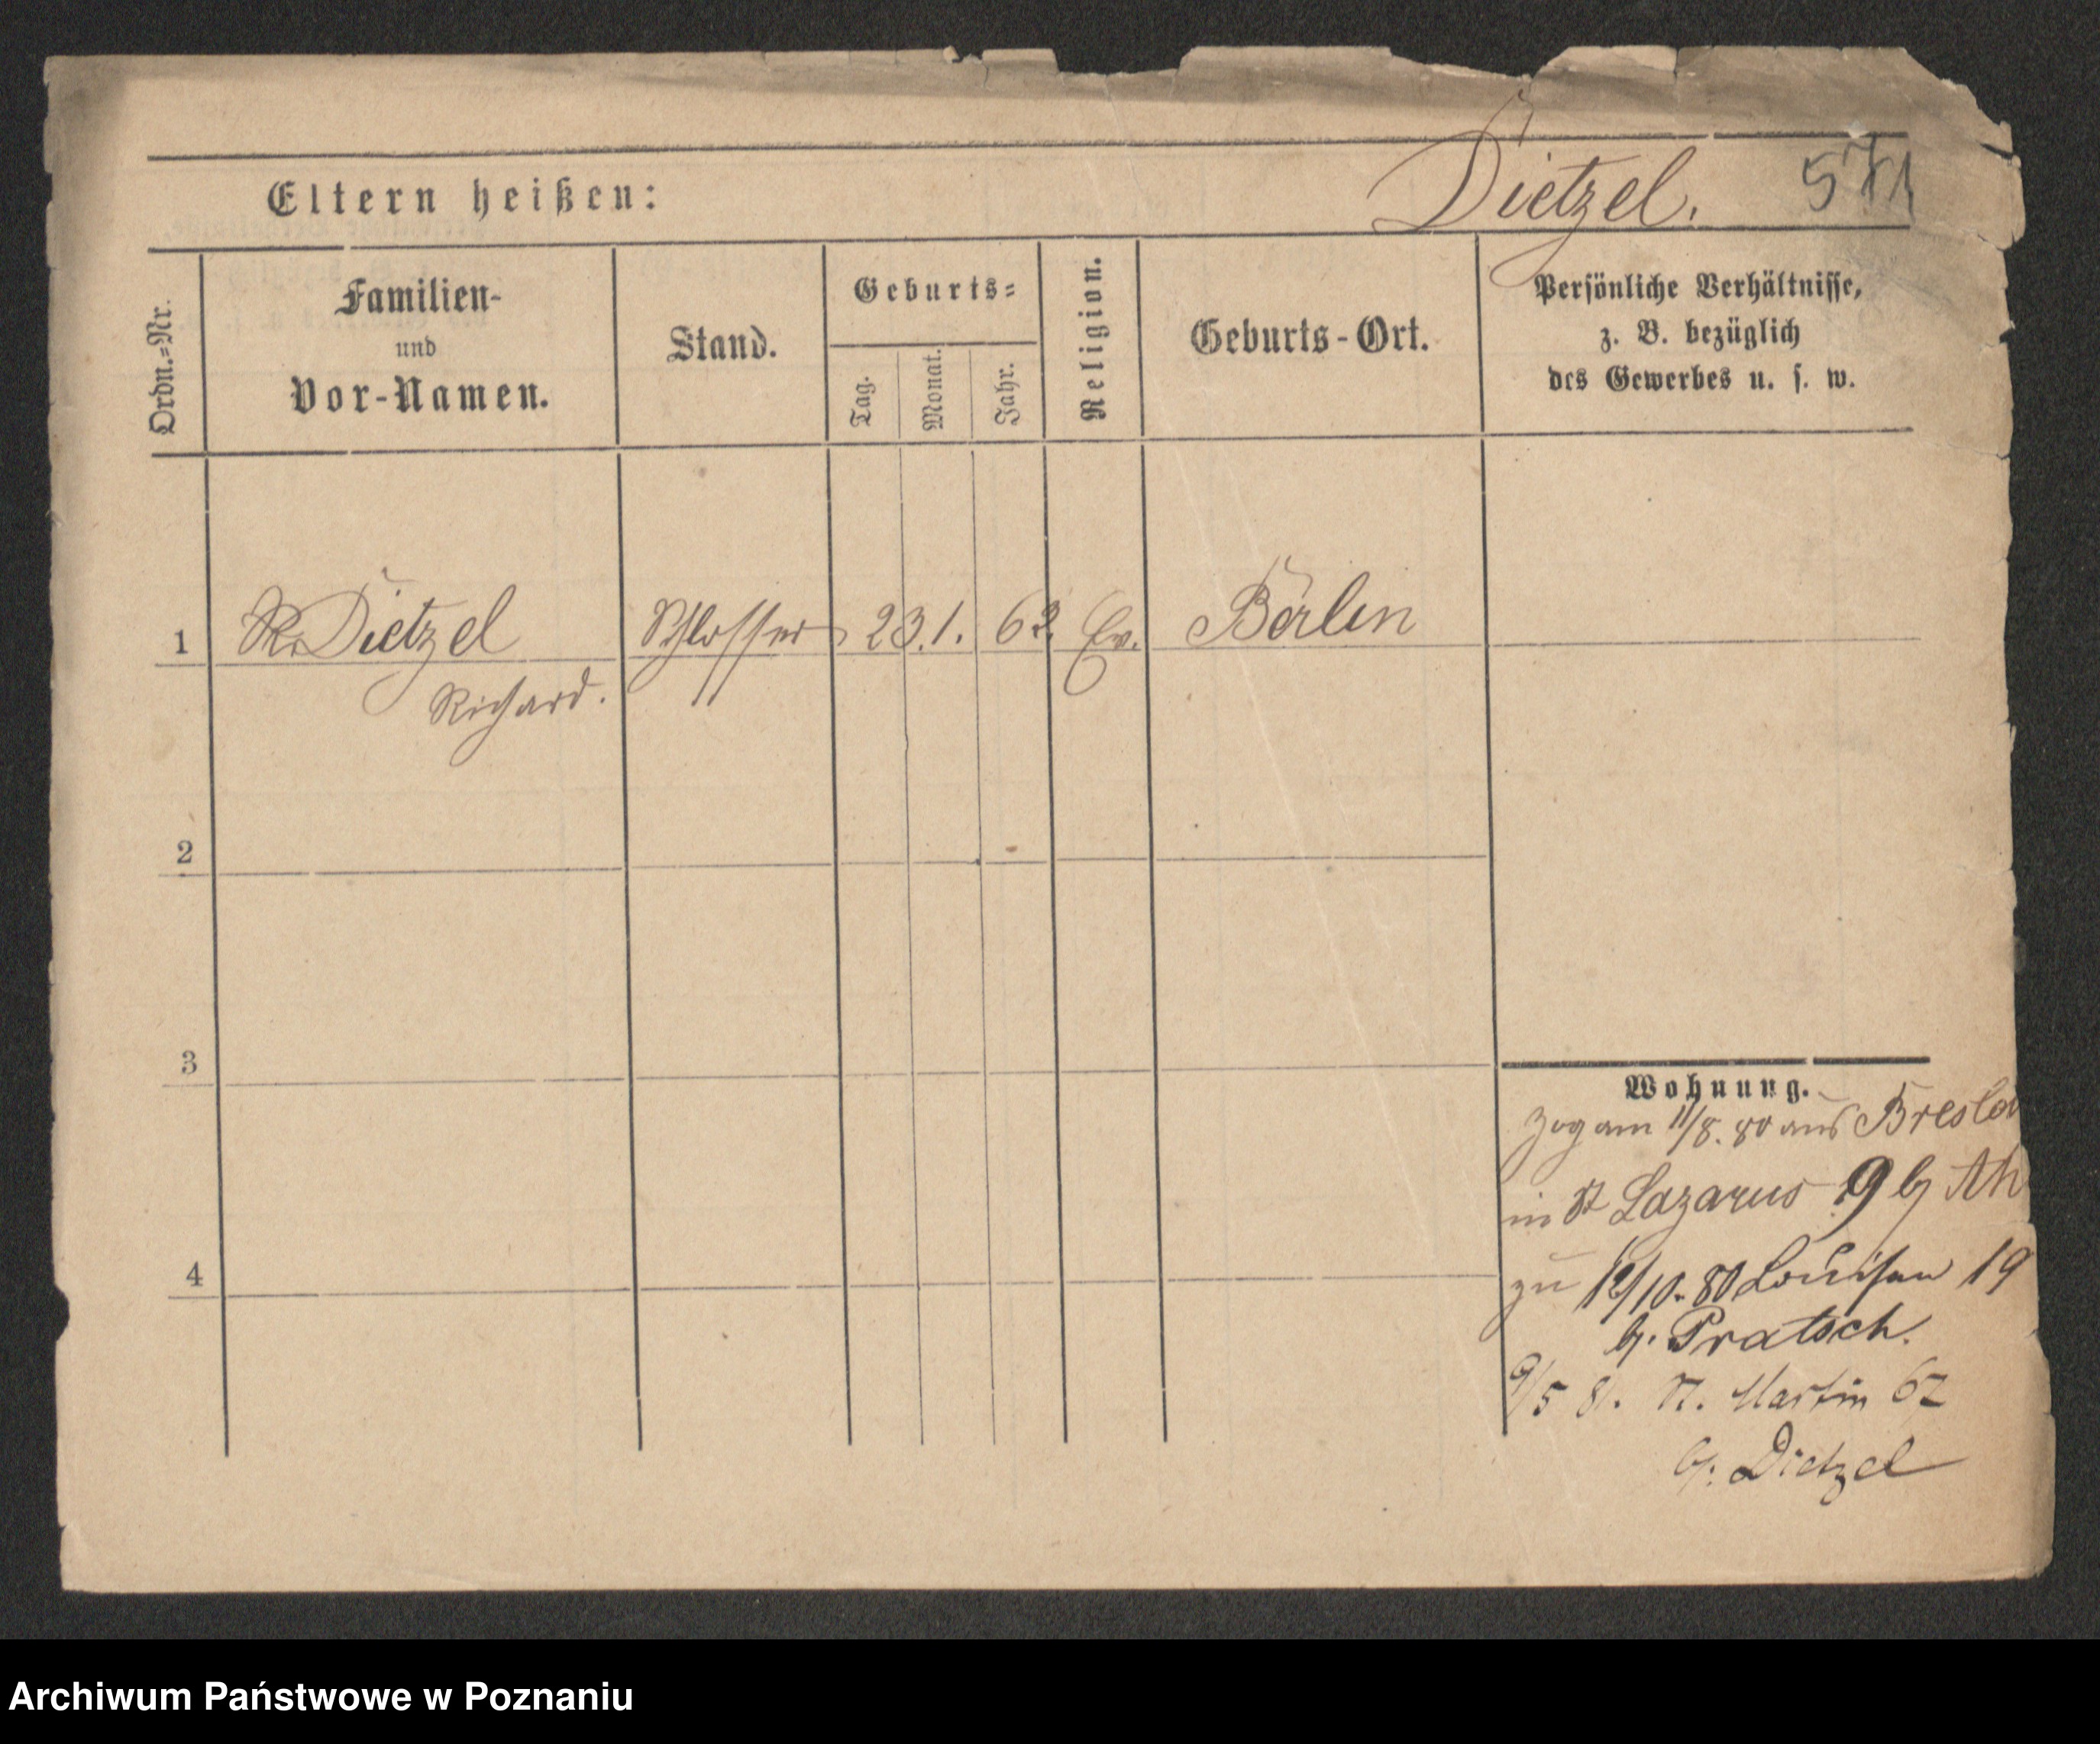 Dietzel. 571
Eltern heißen:
Ordn.=Nr.
Familien-
und
Vor-Namen.
Stand.
Geburts=
Tag.
Monat.
Jahr.
Religion.
Geburts-Ort.
Persönliche Verhältnisse,
z. B. bezüglich
des Gewerbes u. s. w.
1 Dietzel Schlosser 23. 1. 62. Ev. Berlin
Richard.
2
3
4
Wohnung.
Zog am 11/8. 80 aus Breslau
in St Lazarus 9 bj
zu 12/10. 80 Louisen 19
bj. Pratsch.
9/5 81. St. Martin 67
bj. Dietzel
Archiwum Państwowe w Poznaniu